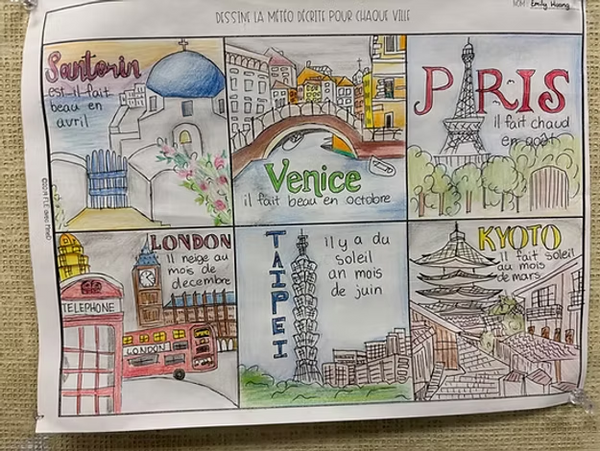 NOM: Emily Huang
DESSINE LA MÉTÉO DÉCRITE POUR CHAQUE VILLE
Santorin
est-il fait
beau en
avril
Venice
il fait beau en octobre
PARIS
il fait chaud
en août
LONDON
Il neige au
mois de
decembre
TELEPHONE
LONDON
TAIPEI
il y a du
soleil
an mois
de juin
KYOTO
Il fait soleil
au mois
de mars